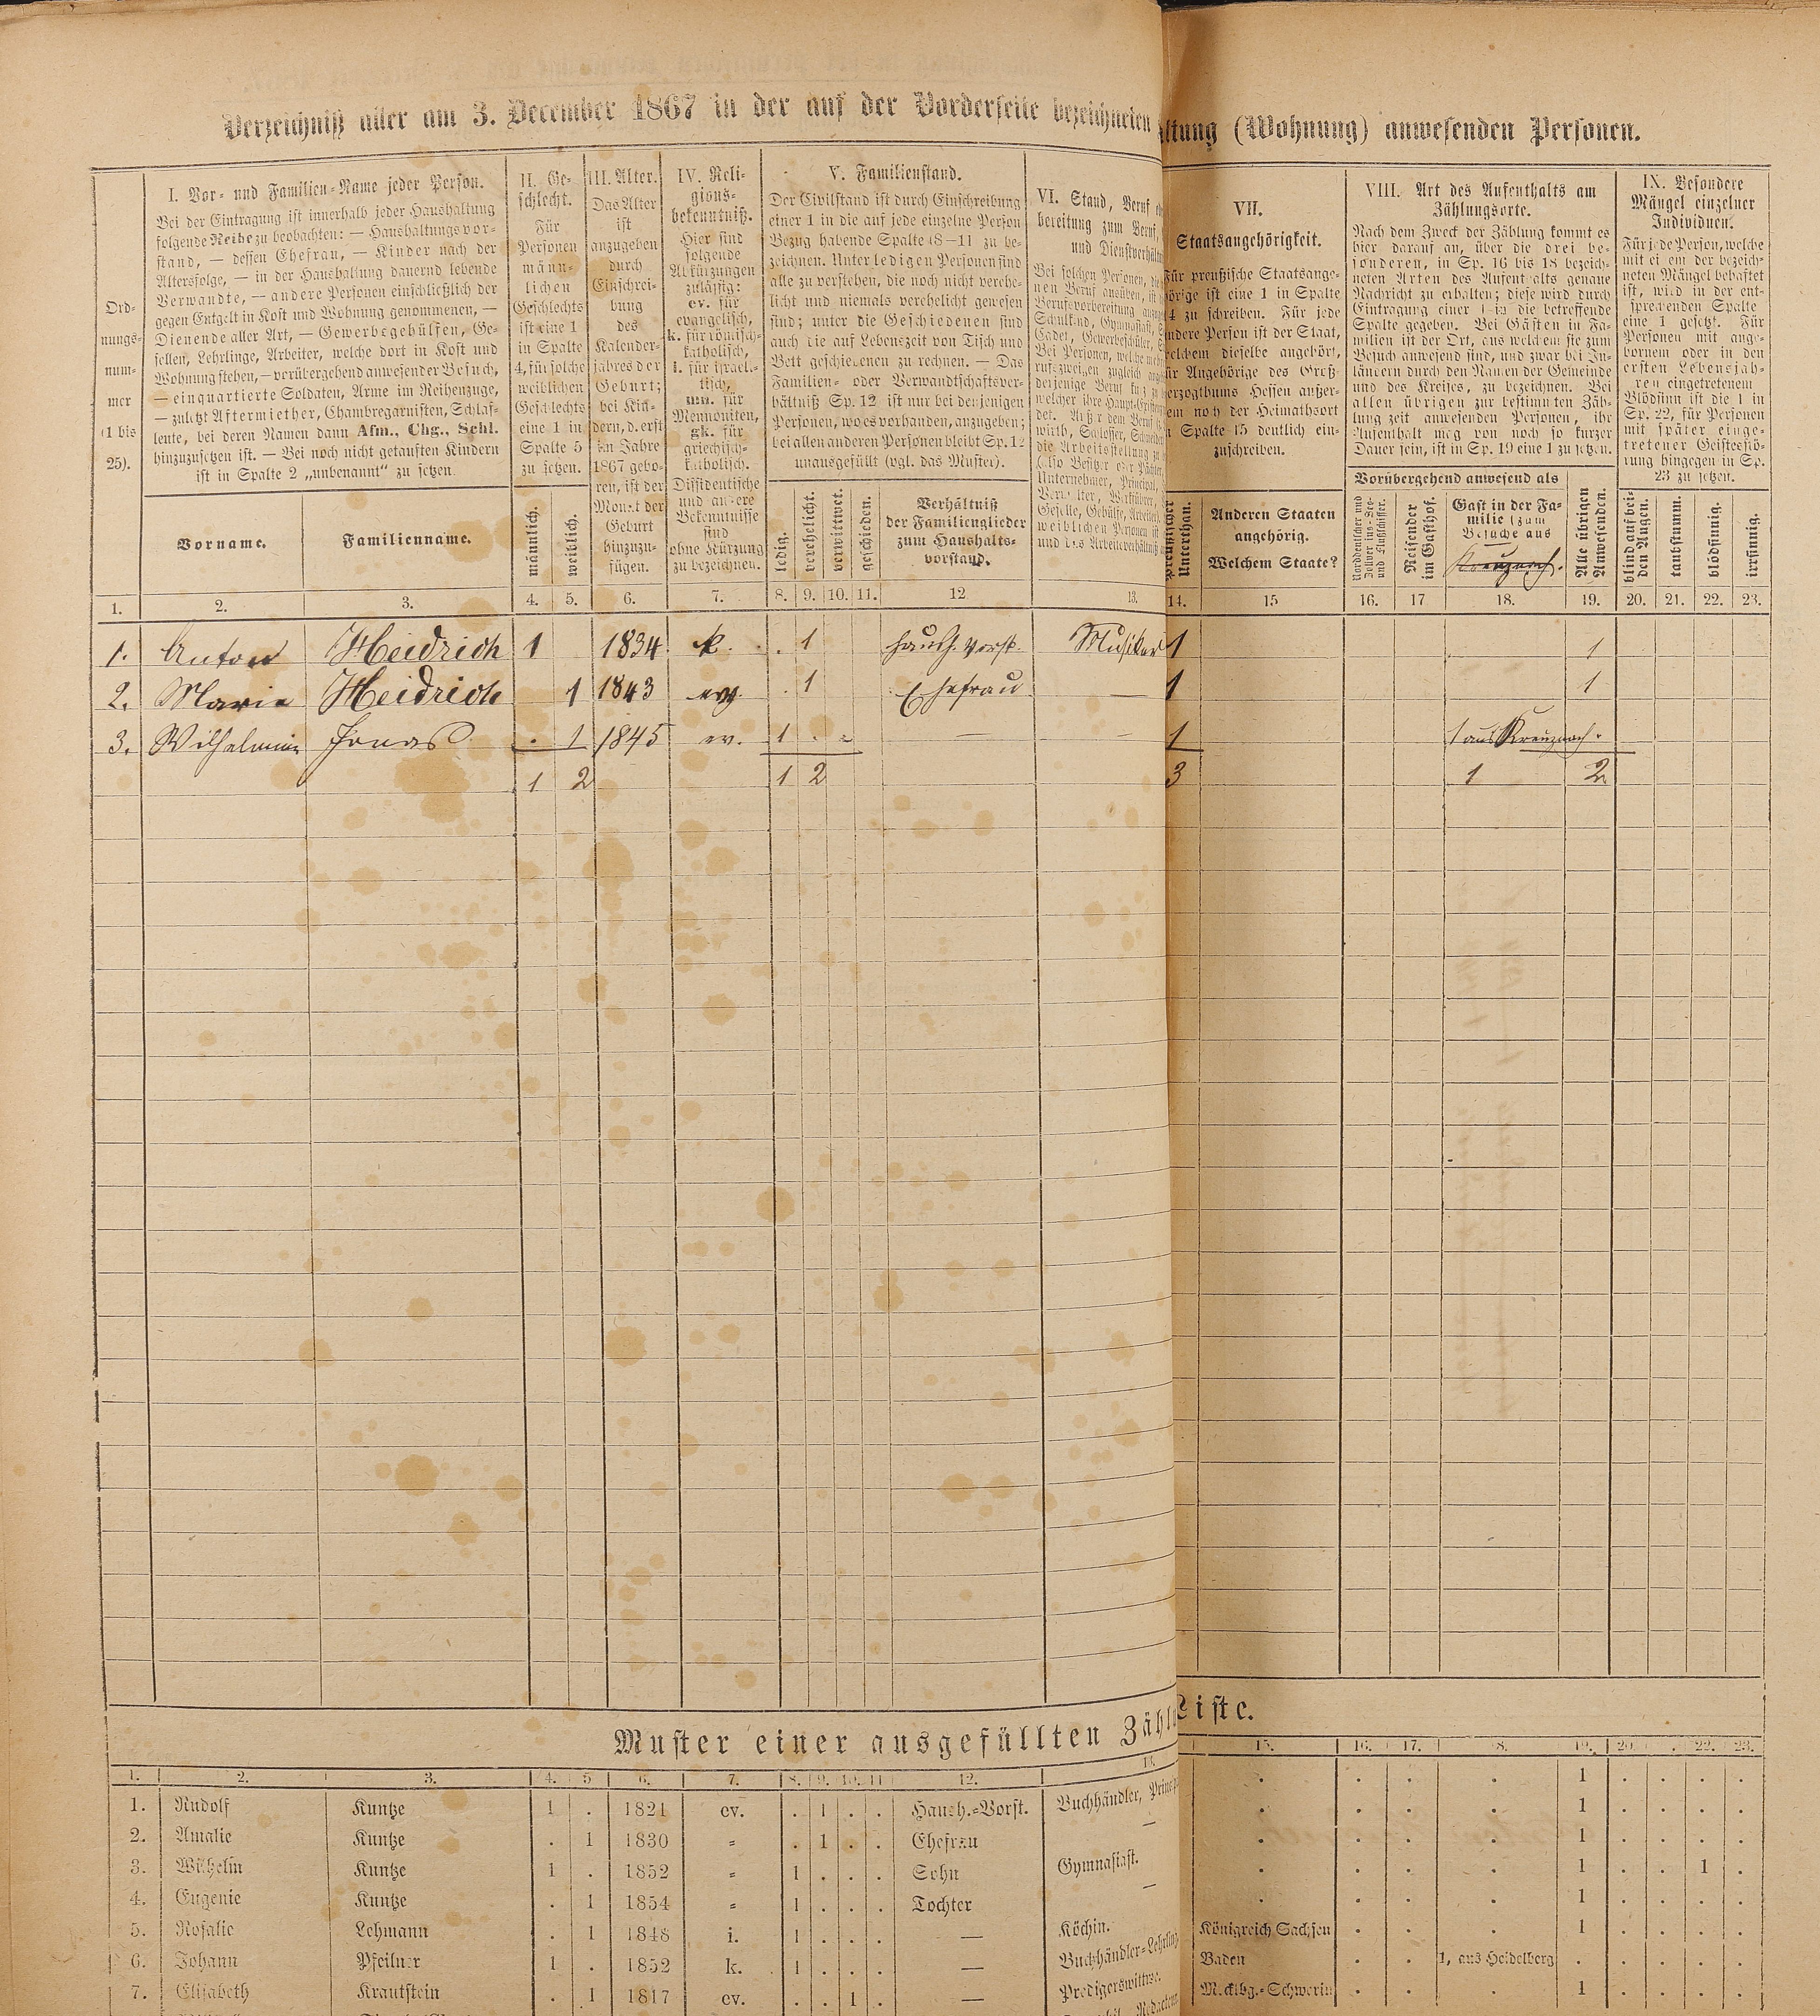 Verzeichniß aller am 3. December 1867 in der auf der Vorderseite bezeichneten
ltung (Wohnung) anwesenden Personen.
Ord-
nungs-
num-
mer
(1 bis
25).
I. Vor- und Familien-Name jeder Person.
Bei der Eintragung ist innerhalb jeder Haushaltung
folgende Reihe zu beobachten: — Haushaltungsvor-
stand, — dessen Ehefrau, — Kinder nach der
Altersfolge, — in der Haushaltung dauernd lebende
Verwandte, — andere Personen einschließlich der
gegen Entgelt in Kost und Wohnung genommenen, —
Dienende aller Art, — Gewerbsgehülfen, Ge-
sellen, Lehrlinge, Arbeiter, welche dort in Kost und
Wohnung stehen, — vorübergehend anwesender Besuch,
— einquartierte Soldaten, Arme im Reihenzuge,
— zuletzt Aftermiether, Chambregarnisten, Schlaf-
leute, bei deren Namen dann Afm., Chg., Schl.
hinzuzusetzen ist. — Bei noch nicht getauften Kindern
ist in Spalte 2 „unbenannt“ zu setzen.
Vorname.
Familienname.
II. Ge-
schlecht.
Für
Personen
männ-
lichen
Geschlechts
ist eine 1
in Spalte
4, für solche
weiblichen
Geschlechts
eine 1 in
Spalte 5
zu setzen.
männlich.
weiblich.
III. Alter.
Das Alter
ist
anzugeben
durch
Einschrei-
bung
des
Kalender-
jahres der
Geburt;
bei Kin-
dern, d. erst
im Jahre
1867 gebo-
ren, ist der
Monat der
Geburt
hinzuzu-
fügen.
IV. Reli-
gions-
bekenntniß.
Hier sind
folgende
Abkürzungen
zulässig:
ev. für
evangelisch,
k. für römisch-
katholisch,
i. für israel-
itisch,
mn. für
Mennoniten,
gk. für
griechisch-
katholisch.
Dissidentische
und andere
Bekenntnisse
sind
ohne Kürzung
zu bezeichnen.
V. Familienstand.
Der Civilstand ist durch Einschreibung
einer 1 in die auf jede einzelne Person
Bezug habende Spalte (8–11) zu be-
zeichnen. Unter ledigen Personen sind
alle zu verstehen, die noch nicht verehe-
licht und niemals verehelicht gewesen
sind; unter die Geschiedenen sind
auch die auf Lebenszeit von Tisch und
Bett geschiedenen zu rechnen. — Das
Familien- oder Verwandtschaftsver-
hältniß Sp. 12 ist nur bei denjenigen
Personen, wo es vorhanden, anzugeben;
bei allen anderen Personen bleibt Sp. 12
unausgefüllt (vgl. das Muster).
ledig.
verehelicht.
verwittwet.
geschieden.
Verhältniß
der Familienglieder
zum Haushalts-
vorstand.
VI. Stand, Beruf
bereitung zum Beruf,
und Dienstverhält
Bei solchen Personen, die
nen Beruf ausüben, ist
Berufsvorbereitung
Schulkind, Gymnasiast,
Cadet, Gewerbeschüler,
Bei Personen, welche
rufszweigen zugleich
derjenige Beruf
welcher ihre
VII.
Staatsangehörigkeit.
Für preußische Staatsange-
hörige ist eine 1 in Spalte
4 zu schreiben. Für jede
andere Person ist der Staat,
welchem dieselbe angehört,
für Angehörige des Groß-
herzogthums Hessen außer-
dem noch der Heimathsort
in Spalte 15 deutlich ein-
zuschreiben.
Preußischer
Unterthan.
Anderen Staaten
angehörig.
Welchem Staate?
VIII. Art des Aufenthalts am
Zählungsorte.
Nach dem Zweck der Zählung kommt es
hier darauf an, über die drei be-
sonderen, in Sp. 16 bis 18 bezeich-
neten Arten des Aufenthalts genaue
Nachricht zu erhalten; diese wird durch
Eintragung einer 1 in die betreffende
Spalte gegeben. Bei Gästen in Fa-
milien ist der Ort, aus welchem sie zum
Besuch anwesend sind, und zwar bei In-
ländern durch den Namen der Gemeinde
und des Kreises, zu bezeichnen. Bei
allen übrigen zur bestimmten Zäh-
lungszeit anwesenden Personen, ihr
Aufenthalt mag von noch so kurzer
Dauer sein, ist in Sp. 19 eine 1 zu setzen.
Vorübergehend anwesend als
Norddeutscher und
Zollver ins-See-
und Flußschiffer.
Reisender
im Gasthof.
Gast in der Fa-
milie (zum
Besuche aus
Kreuznach.
Alle übrigen
Anwesenden.
IX. Besondere
Mängel einzelner
Individuen.
Für jede Person, welche
mit einem der bezeich-
neten Mängel behaftet
ist, wird in der ent-
sprechenden Spalte
eine 1 gesetzt. Für
Personen mit ange-
bornem oder in den
ersten Lebensjah-
ren eingetretenem
Blödsinn ist die 1 in
Sp. 22, für Personen
mit später einge-
tretener Geistesstö-
rung hingegen in Sp.
23 zu setzen.
blind auf bei-
den Augen.
taubstumm.
blödsinnig.
irrsinnig.
1. 2. 3. 4. 5. 6. 7. 8. 9. 10. 11. 12 13. 14. 15 16. 17 18. 19. 20. 21. 22. 23.
1. Anton Heidrich 1 1834 k. . 1 Haush. Vorst. Musiker 1 1
2. Marie Heidrich 1 1843 ev. . 1 Ehefrau — 1 1
3. Wilhelmine Jonas . 1 1845 ev. 1 . — — 1 1 aus Kreuznach.
1 2 1 2 3 1 2.
Muster einer ausgefüllten Zähl
Liste.
1. 2. 3. 4. 5 6. 7. 8. 9. 10. 11 12. 13. 15. 16. 17. 18. 19. 20. . 22. 23.
1. Rudolf Kuntze 1 . 1821 ev. . 1 . . Haush.-Vorst. Buchhändler, Prinz . . . . 1 . . . .
2. Amalie Kuntze . 1 1830 „ . 1 . . Ehefrau — . . . . 1 . . . .
3. Wilhelm Kuntze 1 . 1852 „ 1 . . . Sohn Gymnasiast. . . . . 1 . . . .
4. Eugenie Kuntze . 1 1854 „ 1 . . . Tochter — . . . . 1 . . 1 .
5. Rosalie Lehmann . 1 1848 i. 1 . . . — Köchin. . . . . 1 . . . .
6. Johann Pfeilner 1 . 1852 k. 1 . . . — Buchhändler-Lehrling Königreich Sachsen . . . 1 . . . .
7. Elisabeth Krautstein . 1 1817 ev. . . 1 . — Predigerswittwe. Baden . . 1, aus Heidelberg . . . . .
Mcklbg.-Schwerin . . . 1 . . . .